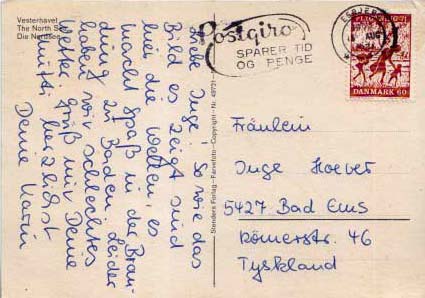 Vesterhavet
The North Sea
Die Nordsee
Liebe Inge! So wie das
Bild es zeigt sind
hier die Wellen, es
macht Spaß in der Bran-
dung zu Baden. Leider
haben wir schlechtes
Wetter. Grüß mir Deine
Mutti, herzlichst
Deine Karin
Stenders Forlag - Farvefoto - Copyright - Nr.
Postgiro
SPARER TID
OG PENGE
ESBJERG
AUG
DANMARK 60
Fräulein
Inge Hoever
5427 Bad Ems
Römerstr. 46
Tyskland